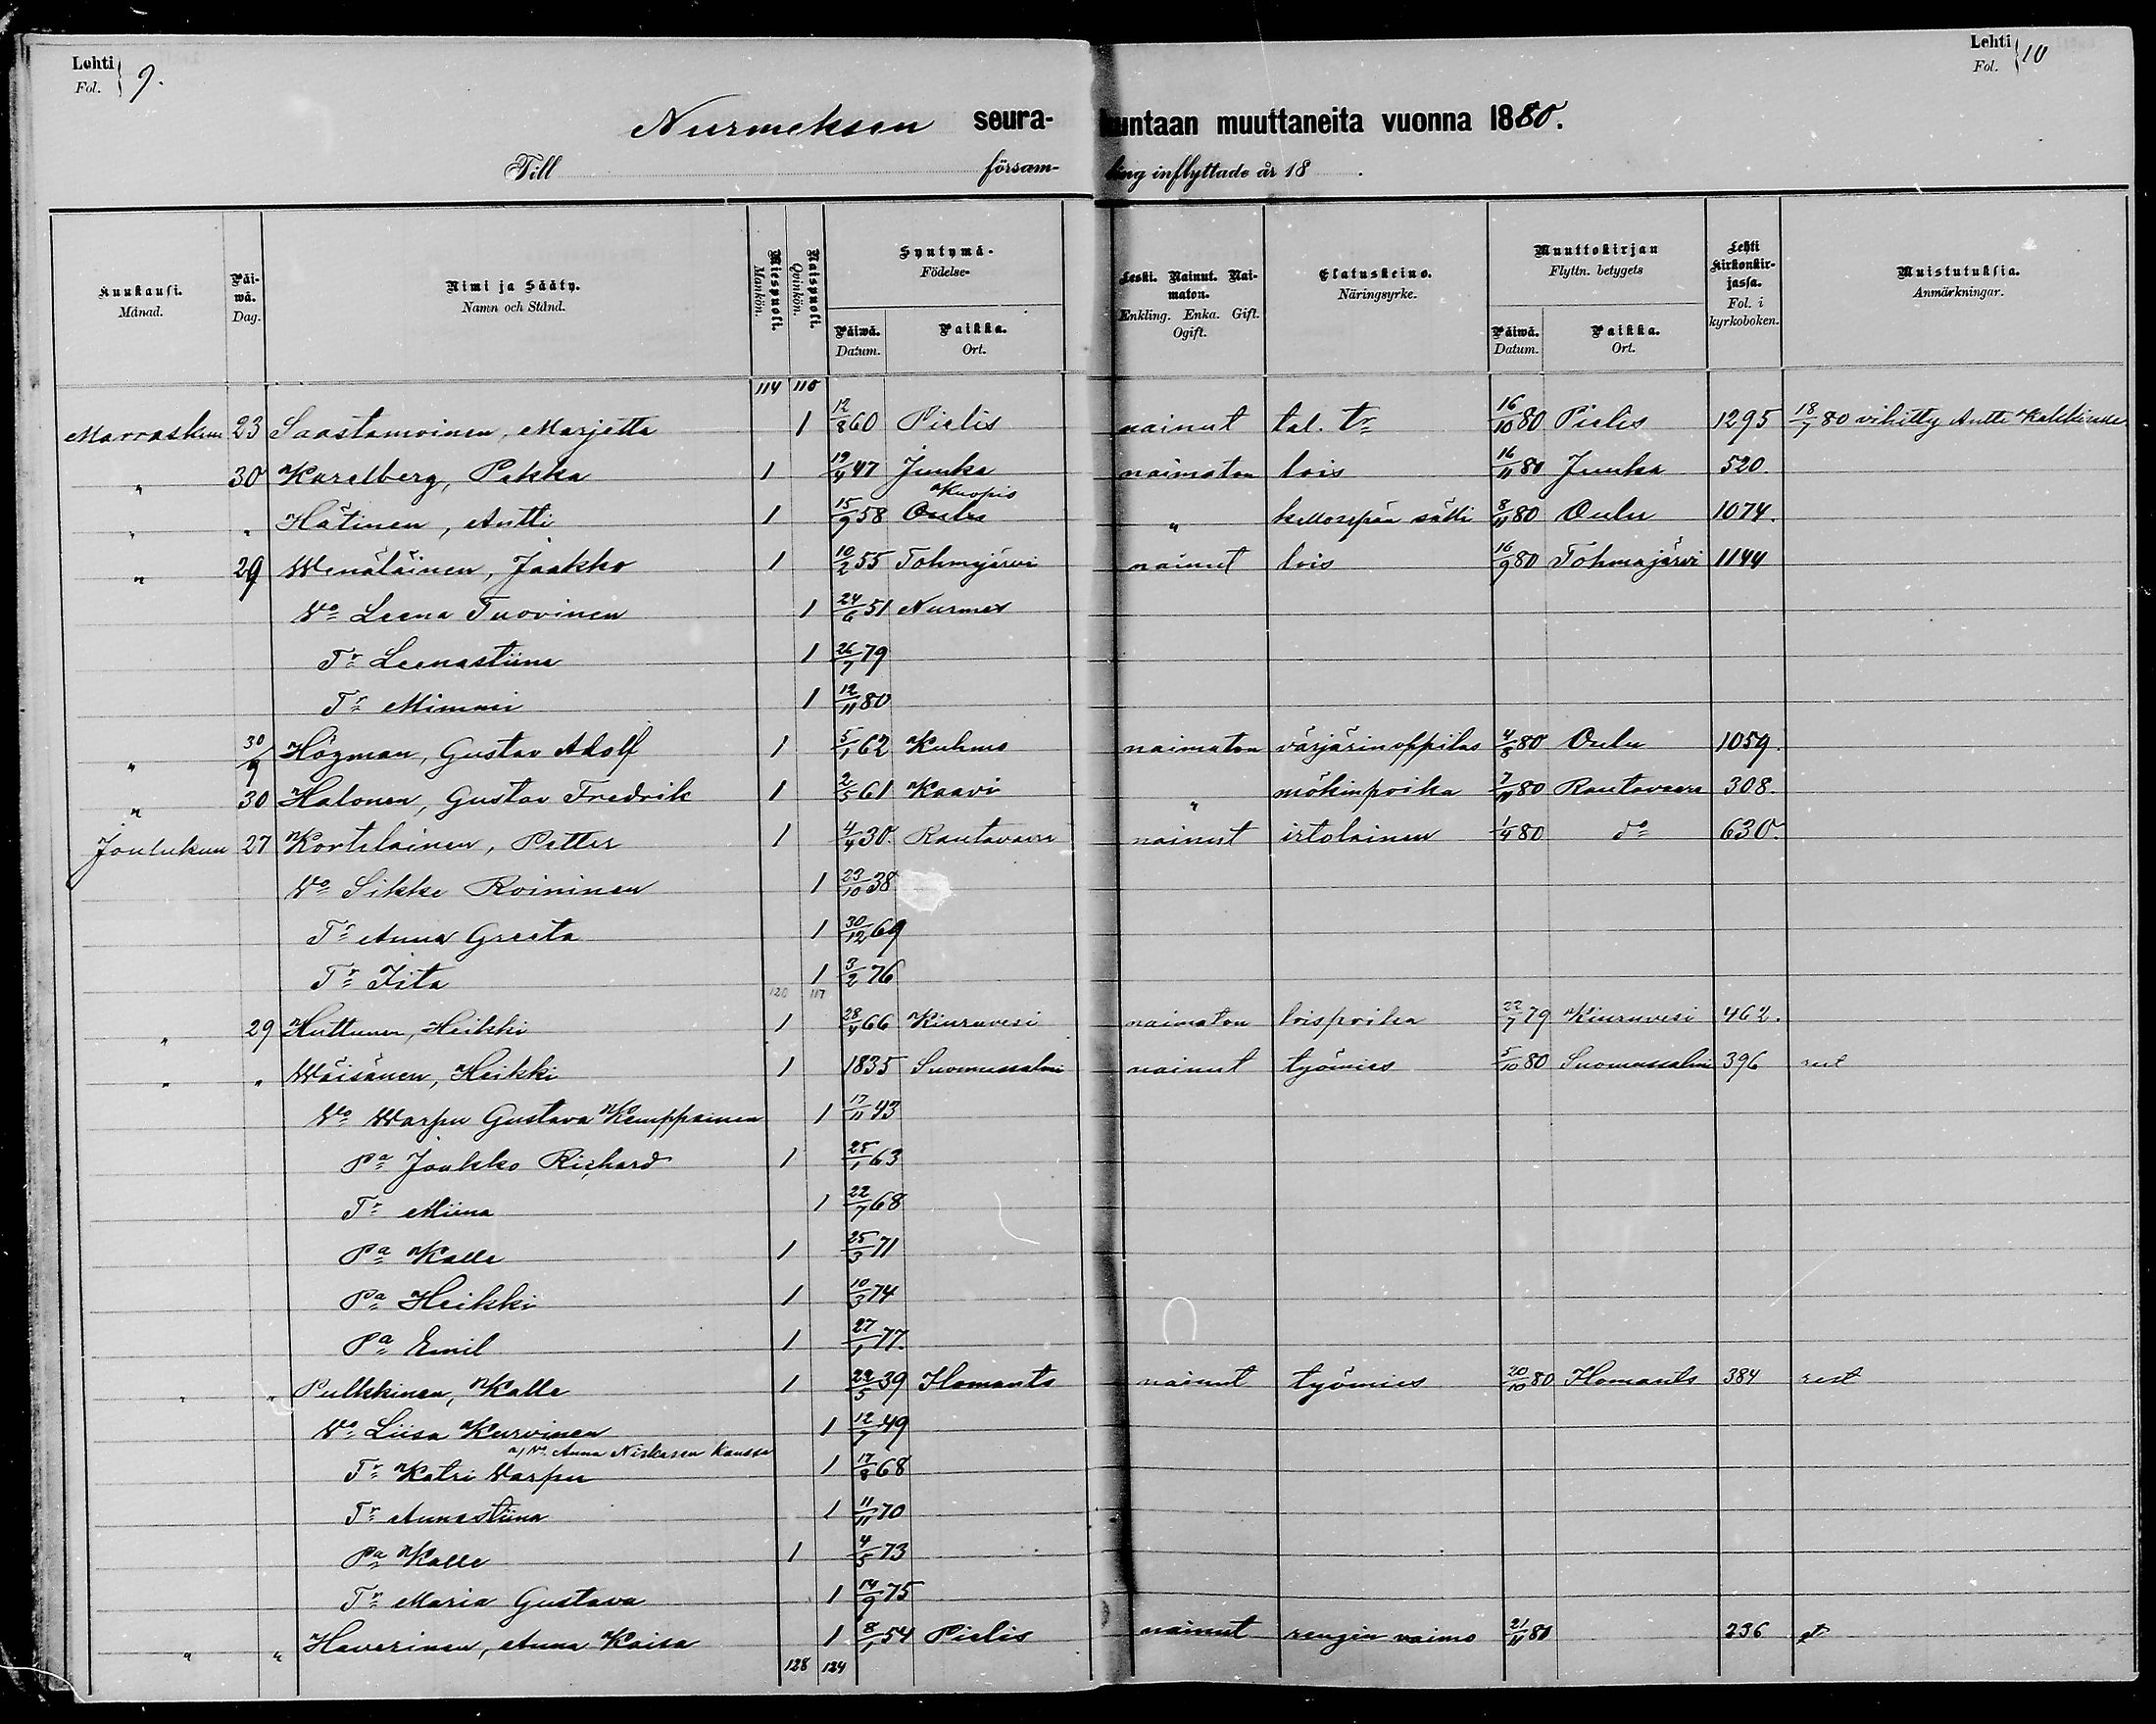 Lehti Fol. } 9.
Lehti Fol. } 10
Nurmeksen seura- kuntaan muuttaneita vuonna 1880.
Till försam- ling inflyttade år 18 .
Kuukausi. Månad. Päiwä. Dag. Nimi ja Sääty. Namn och Stånd. Miespuoli. Mankön. Naispuoli. Qvinkön. Syntymä- Födelse- Päiwä. Datum. Paikka. Ort. Leski. Nainut. Naimaton. Enkling. Enka. Gift. Ogift. Elatuskeino. Näringsyrke. Muuttokirjan Flyttn. betygets Päiwä. Datum. Paikka. Ort. Lehti kirkonkirjassa. Fol. i kyrkoboken. Muistutuksia. Anmärkningar.
114 110
Marraskuu 23 Saastamoinen, Marjetta 1 12/8 60 Pielis nainut tal. tr 16/10 80 Pielis 1295 18/7 80 vihitty Antti
" 30 Karelberg, Pekka 1 19/4 47 Juuka naimaton lois 16/11 80 Juuka 520.
Kuopio
" " Hätinen, Antti 1 15/9 58 Oulu " kellosepän sälli 8/11 80 Oulu 1074.
" 29 Wenäläinen, Jaakko 1 10/2 55 Tohmajärvi nainut lois 16/9 80 Tohmajärvi 1144
Vo Leena Tuovinen 1 24/6 51 Nurmes
Tr Leenastiina 1 26/7 79
Tr Mimmi 1 12/11 80
" 30/9 Högman, Gustav Adolf 1 5/1 62 Kuhmo naimaton värjärinoppilas 4/8 80 Oulu 1059.
" 30 Halonen, Gustav Fredrik 1 2/5 61 Kaavi " mökinpoika 7/11 80 Rautavaara 308.
Joulukuu 27 Kortelainen, Petter 1 4/4 30. Rautavaara nainut irtolainen 1/4 80 do 630.
Vo Sikke Roininen 1 23/10 38
Tr Anna Greeta 1 30/12 69
Tr Iita 1 3/2 76
120 117
" 29 Huttunen, Heikki 1 28/4 66 Kiuruvesi naimaton loispoika 22/7 79 Kiuruvesi 462.
" " Wäisänen, Heikki 1 1835 Suomussalmi nainut työmies 5/10 80 Suomussalmi 396
Vo Warpu Gustava Kemppainen 1 17/11 43
Pa Jaakko Richard 1 25/1 63
Tr Miina 1 22/7 68
Pa Kalle 1 25/3 71
Pa Heikki 1 10/3 74
Pa Emil 1 27/1 77.
" " Pulkkinen, Kalle 1 22/5 39 Ilomants nainut työmies 20/10 80 Ilomants 384 rest
Vo Liisa Kurvinen 1 12/7 49
a/ Vo Anna Niskasen kanssa
Tr Katri Varpu 1 17/8 68
Tr Annastiina 1 11/11 70
Pa Kalle 1 4/5 73
Tr Maria Gustava 1 14/9 75
" " Haverinen, Anna Kaisa 1 8/1 54 Pielis nainut rengin vaimo 21/11 80 236
128 124